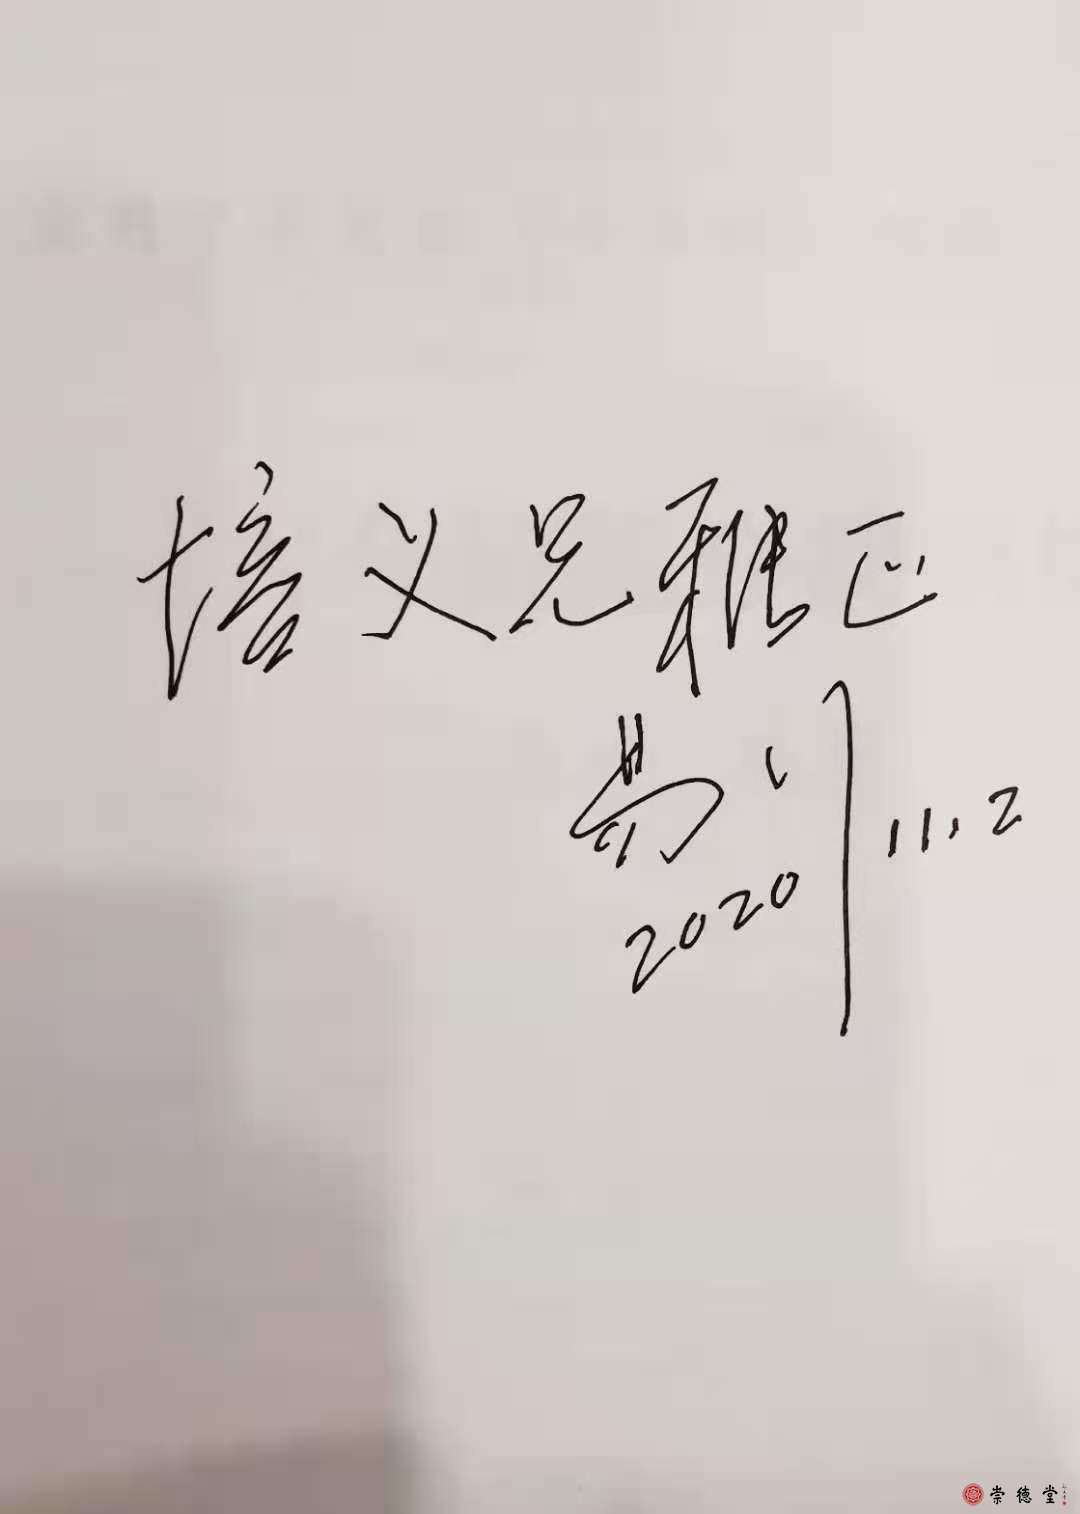 培义兄雅正
2020 11.2
崇德堂